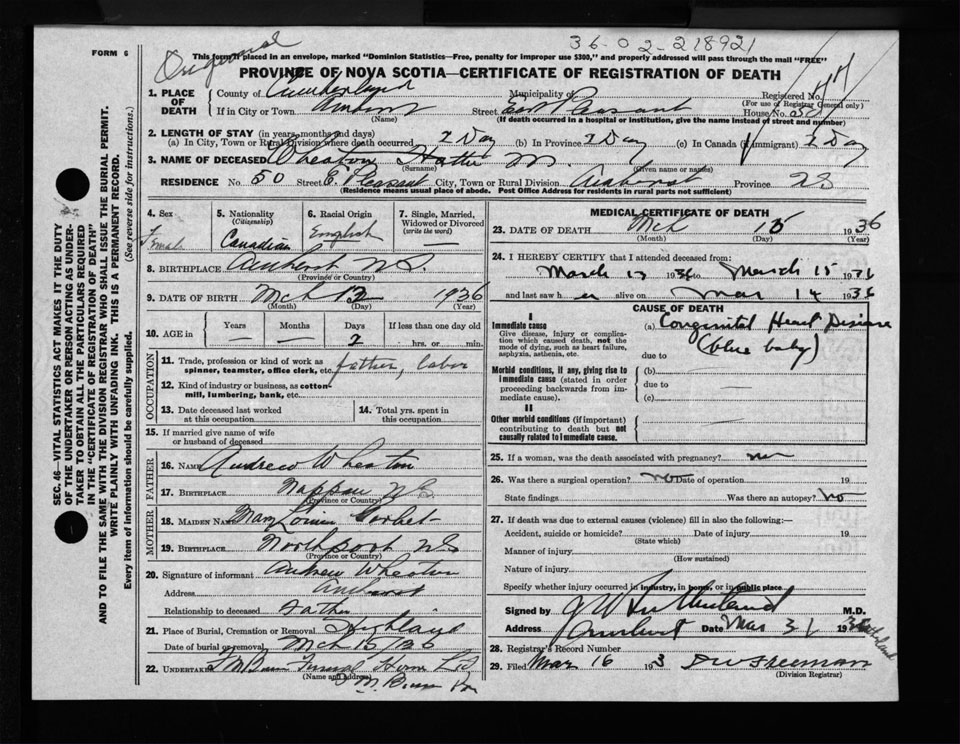 36-02-218921
Original
FORM 6
This form if placed in an envelope, marked "Dominion Statistics—Free, penalty for improper use $300," and properly addressed will pass through the mail "FREE"
PROVINCE OF NOVA SCOTIA—CERTIFICATE OF REGISTRATION OF DEATH
1. PLACE OF DEATH
County of Cumberland Municipality of Registered No.
(For use of Registrar General only)
If in City or Town Amherst Street East Pleasant House No. 50
(Name) (If death occurred in a hospital or institution, give the name instead of street and number)
2. LENGTH OF STAY (in years, months and days)
(a) In City, Town or Rural Division where death occurred 2 Day (b) In Province 2 Day (c) In Canada (if immigrant) 2 Day
3. NAME OF DECEASED Wheaton Hattie M.
(Surname) (Given name or names)
RESIDENCE No. 50 Street E. Pleasant City, Town or Rural Division Amherst Province NS
(Residence means usual place of abode. Post Office Address for residents in rural parts not sufficient)
4. Sex
Female
5. Nationality
(Citizenship)
Canadian
6. Racial Origin
English
7. Single, Married, Widowed or Divorced
(write the word)
8. BIRTHPLACE Amherst N.S.
(Province or Country)
9. DATE OF BIRTH Mch 13 1936
(Month) (Day) (Year)
10. AGE in
Years Months Days If less than one day old
2 hrs. or min.
OCCUPATION
11. Trade, profession or kind of work as spinner, teamster, office clerk, etc. father, labor
12. Kind of industry or business, as cotton-mill, lumbering, bank, etc.
13. Date deceased last worked at this occupation
14. Total yrs. spent in this occupation
15. If married give name of wife or husband of deceased
FATHER
16. NAME Andrew Wheaton
17. BIRTHPLACE Nappan NS
(Province or Country)
MOTHER
18. MAIDEN NAME Mary Louise Corbet
19. BIRTHPLACE Northport NS
(Province or Country)
20. Signature of informant Andrew Wheaton
Address Amherst
Relationship to deceased Father
21. Place of Burial, Cremation or Removal Highland
Date of burial or removal Mch 15/36
22. UNDERTAKER Funeral Home Ltd
(Name and address)
MEDICAL CERTIFICATE OF DEATH
23. DATE OF DEATH Mch 15 1936
(Month) (Day) (Year)
24. I HEREBY CERTIFY that I attended deceased from:
March 13 1936 to March 15 1936
and last saw h er alive on Mar 14 1936
CAUSE OF DEATH
I
Immediate cause
Give disease, injury or complication which caused death, not the mode of dying, such as heart failure, asphyxia, asthenia, etc.
(a) Congenital Heart Disease
(blue baby)
due to
Morbid conditions, if any, giving rise to immediate cause (stated in order proceeding backwards from immediate cause).
(b)
due to
(c)
II
Other morbid conditions (if important) contributing to death but not causally related to immediate cause.
25. If a woman, was the death associated with pregnancy? no
26. Was there a surgical operation? no Date of operation 19
State findings Was there an autopsy? no
27. If death was due to external causes (violence) fill in also the following:—
Accident, suicide or homicide? Date of injury 19
(State which)
Manner of injury
(How sustained)
Nature of injury
Specify whether injury occurred in industry, in home, or in public place
Signed by J W Sutherland M.D.
Address Amherst Date Mar 31 193
28. Registrar's Record Number
29. Filed Mar 16 193 Freeman
(Division Registrar)
SEC. 46—VITAL STATISTICS ACT MAKES IT THE DUTY
OF THE UNDERTAKER OR PERSON ACTING AS UNDER-
TAKER TO OBTAIN ALL THE PARTICULARS REQUIRED
IN THE "CERTIFICATE OF REGISTRATION OF DEATH"
AND TO FILE THE SAME WITH THE DIVISION REGISTRAR WHO SHALL ISSUE THE BURIAL PERMIT.
WRITE PLAINLY WITH UNFADING INK. THIS IS A PERMANENT RECORD.
Every item of information should be carefully supplied. (See reverse side for instructions.)